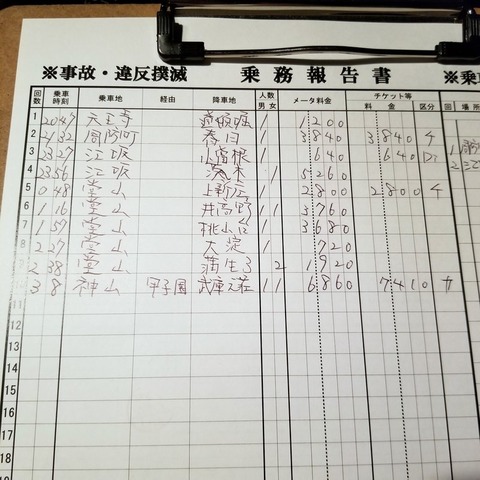 ※事故・違反撲滅 乗務報告書 ※乗
回数 乗車時刻 乗車地 経由 降車地 人数 男 女 メータ料金 チケット等 料金 区分 回 場所
1 20 47 天王寺 道頓堀 1 1200
2 21 32 周防町 春日 1 3840 3840 チ
3 23 27 江坂 小曽根 1 640 640
4 23 56 江坂 茨木 1 5260
5 0 48 堂山 上新庄 1 2800 2800 チ
6 1 16 堂山 井高野 1 1 3760
7 1 57 堂山 桃山台 1 3680
8 2 27 堂山 大淀 1 720
9 2 38 堂山 蒲生 2 1920
10 3 8 神山 甲子園 武庫之荘 1 1 6860 7410 カ
11
12
13
14
15
16
17
18